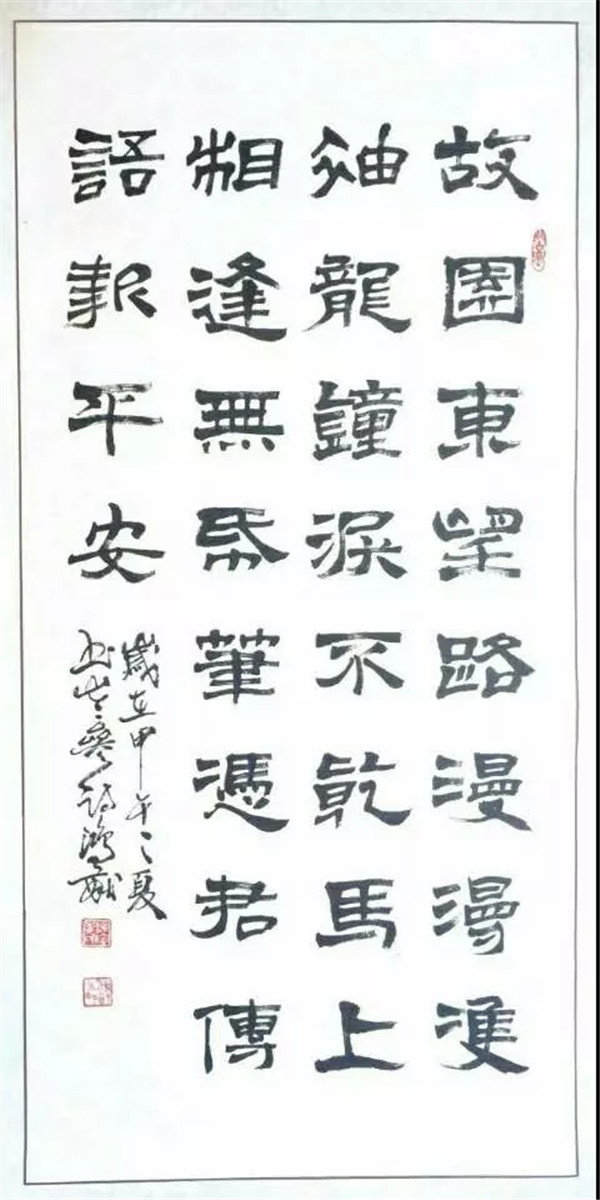 故園東望路漫漫雙
袖龍鐘淚不乾馬上
相逢無帋筆憑君傳
語報平安
歲在甲午之夏
書岑參詩鴻